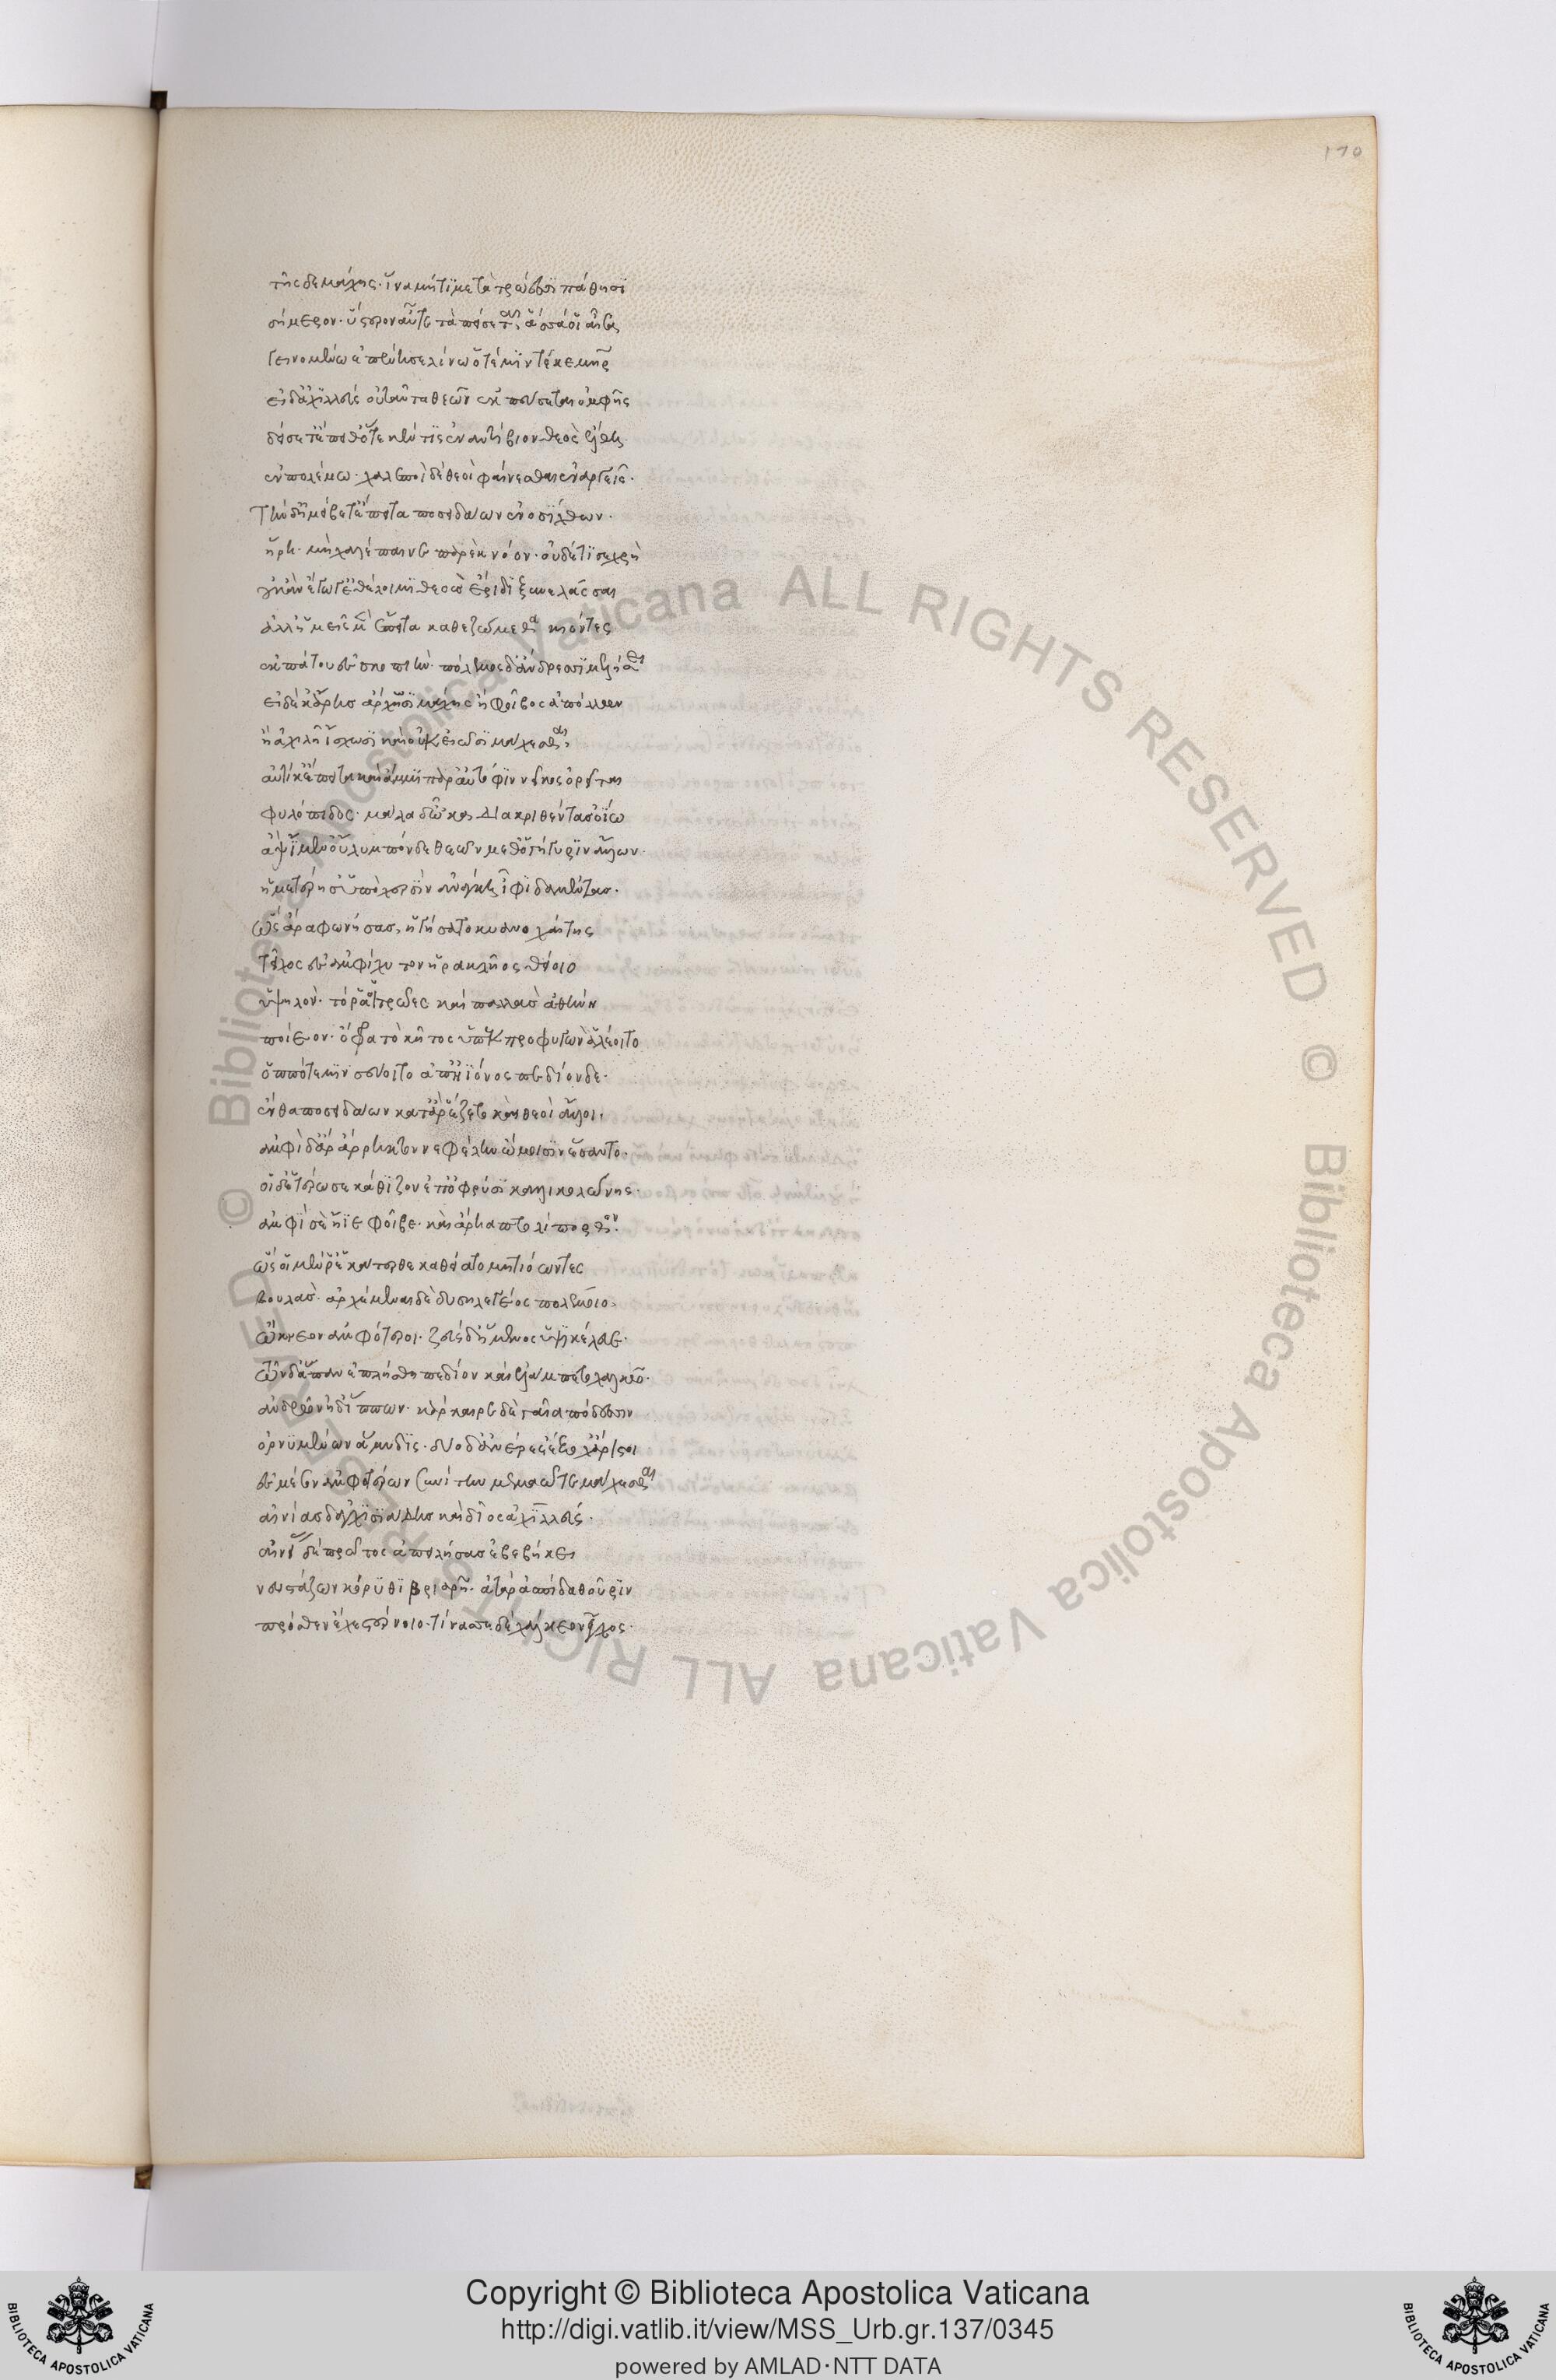 τῆςδε μάχης· ἵνα μήτι μετὰ τρώεσσι πάθησι
σήμερον· ὕστερον αὖτε τὰ πείσεται, ἅσσά οἱ αἶσα
γεινομένω ἐπένησε λίνω ὅτέ μιν τέκε μήτηρ
εἰ δ' ἀχιλλεύς οὐ ταῦτα θεῶν ἐκ πεύσεται ὀμφῆς
δείσετ' ἔπειθ' ὅτε κέν τις ἐναντίβιον θεὸς ἔλθη
ἐν πολέμω· χαλεποὶ δέ θεοὶ φαίνεσθαι ἐναργεῖς·
Τὴν δ' ἠμείβετ' ἔπειτα ποσειδάων ἐνοσίχθων·
ἥρη· μὴ χαλέπαινε παρὲκ νόον· οὐδέ τί σε χρὴ
οὐκ ἂν ἔγωγ' ἐθέλοιμι θεοὺς ἔριδι ξυνελάσσαι
ἀλλ' ἡμεῖς μὲν ἔπειτα καθεζώμεθα κιόντες
ἐκ πάτου ἐς σκοπιήν· πόλεμος δ' ἄνδρεσσι μελήσει
εἰ δέ κ' ἄρης ἄρχησι μάχης ἢ φοῖβος ἀπόλλων
ἢ ἀχιλῆ' ἴσχωσι καὶ οὐκ εἰῶσι μάχεσθαι,
αὐτίκ' ἔπειτα καὶ ἄμμι παρ' αὐτόφι νεῖκος ὀρεῖται
φυλόπιδος· μάλα δ' ὦκα διακριθέντας ὀΐω
ἂψ ἴμεν οὔλυμπόνδε θεῶν μεθ' ὁμήγυριν ἄλλων·
ἡμετέρης ὑπὸ χερσὶν ἀνάγκη ἶφι δαμέντας·
Ὣς ἄρα φωνήσας, ἡγήσατο κυανοχαίτης
τεῖχος ἐς ἀμφίχυτον ἡρακλῆος θείοιο
ὑψηλόν· τό ῥά οἱ τρῶες καὶ παλλὰς ἀθήνη
ποίεον· ὄφρα τὸ κῆτος ὑπεκπροφυγὼν ἀλέοιτο
ὁππότε μιν σεύοιτο ἀπ' ἠϊόνος πεδίονδε·
ἔνθα ποσειδάων κατ' ἄρ' ἕζετο καὶ θεοὶ ἄλλοι·
ἀμφὶ δ' ἄρ' ἄρρηκτον νεφέλην ὤμοισιν ἕσαντο·
οἱ δ' ἑτέρωσε κάθιζον ἐπ' ὀφρύσι καλλικολώνης·
ἀμφί σὲ ἤϊε φοῖβε· καὶ ἄρηα πτολίπορθον·
ὣς οἱ μέν ῥ' ἑκάτερθε καθείατο μητιόωντες
βουλάς· ἀρχέμεναι δὲ δυσηλεγέος πολέμοιο,
ὤκνεον ἀμφότεροι· ζεὺς δ' ἥμενος ὕψι κέλευε·
τῶν δ' ἅπαν ἐπλήσθη πεδίον καὶ ἐλάμπετο χαλκῶ·
ἀνδρῶν ἠδ' ἵππων· κάρκαιρε δὲ γαῖα πόδεσσιν
ὀρνυμένων ἄμυδις· δύο δ' ἀνέρες ἔξοχ' ἄριστοι
ἐς μέσον ἀμφοτέρων συνίτην μεμαῶτε μάχεσθαι
αἰνείας δ' ἀγχισιάδης καὶ δῖος ἀχιλλεύς·
αἰνείας δὲ πρῶτος ἀπειλήσας ἐβεβήκει
νευστάζων κόρυθι βριαρῆ· ἀτὰρ ἀσπίδα θοῦριν
πρόσθεν ἔχε στέρνοιο· τίνασσε δὲ χάλκεον ἔγχος·
170
Copyright © Biblioteca Apostolica Vaticana
http://digi.vatlib.it/view/MSS_Urb.gr.137/0345
powered by AMLAD·NTT DATA